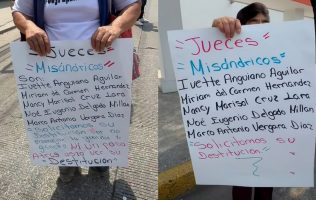 "Jueces"
Misándricos
Son:
Ivette Anguiano Aguilar
Miriam del Carmen Hernandez
Nancy Marisol Cruz Lara
Noé Eugenio Delgado Millan
Marco Antonio Vergara Diaz
Solicitamos su
Destitución
"Destitución"
"Jueces"
"Misándricos"
Ivette Anguiano Aguilar
Miriam de Carmen Hernandez
Nancy Marisol Cruz Lara
Noé Eugenio Delgado Millan
Marco Antonio Vergara Diaz
"Solicitamos su
Destitución"